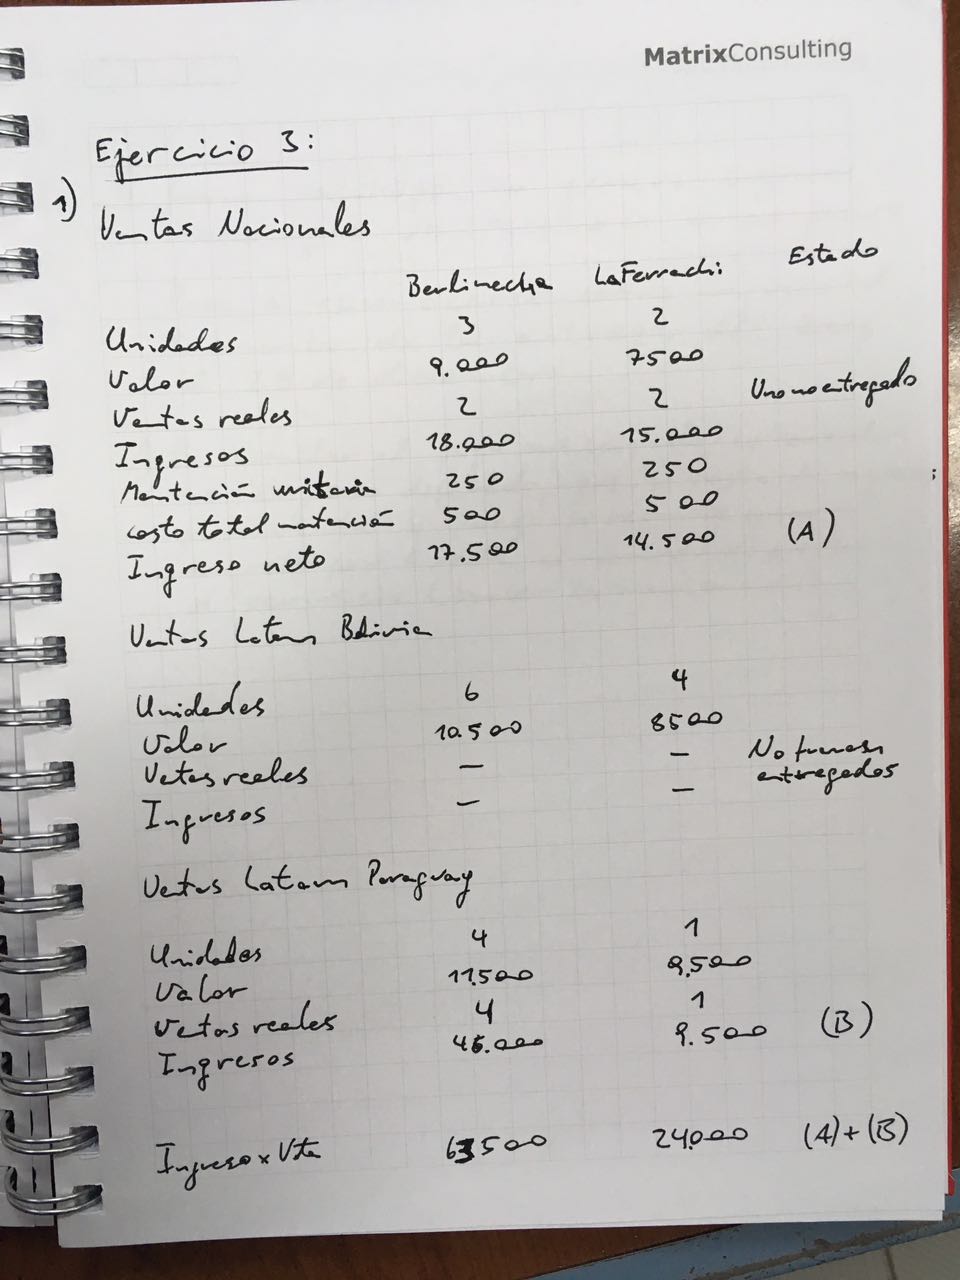 MatrixConsulting
Ejercicio 3:
1)
Ventas Nacionales
Berlinecha LaFerrachi Estado
Unidades 3 2
Valor 9.000 7500
Ventas reales 2 2 Uno no entregado
Ingresos 18.000 15.000
Mantención unitaria 250 250
costo total matención 500 500
Ingreso neto 17.500 14.500 (A)
Ventas Latam Bolivia
Unidades 6 4
Valor 10.500 8500
Vetas reales — — No fueron
entregados
Ingresos — —
Ventas Latam Paraguay
Unidades 4 1
Valor 11.500 9,500
Vetas reales 4 1
Ingresos 46.000 9.500 (B)
Ingreso x Vta 63500 24.000 (A)+(B)